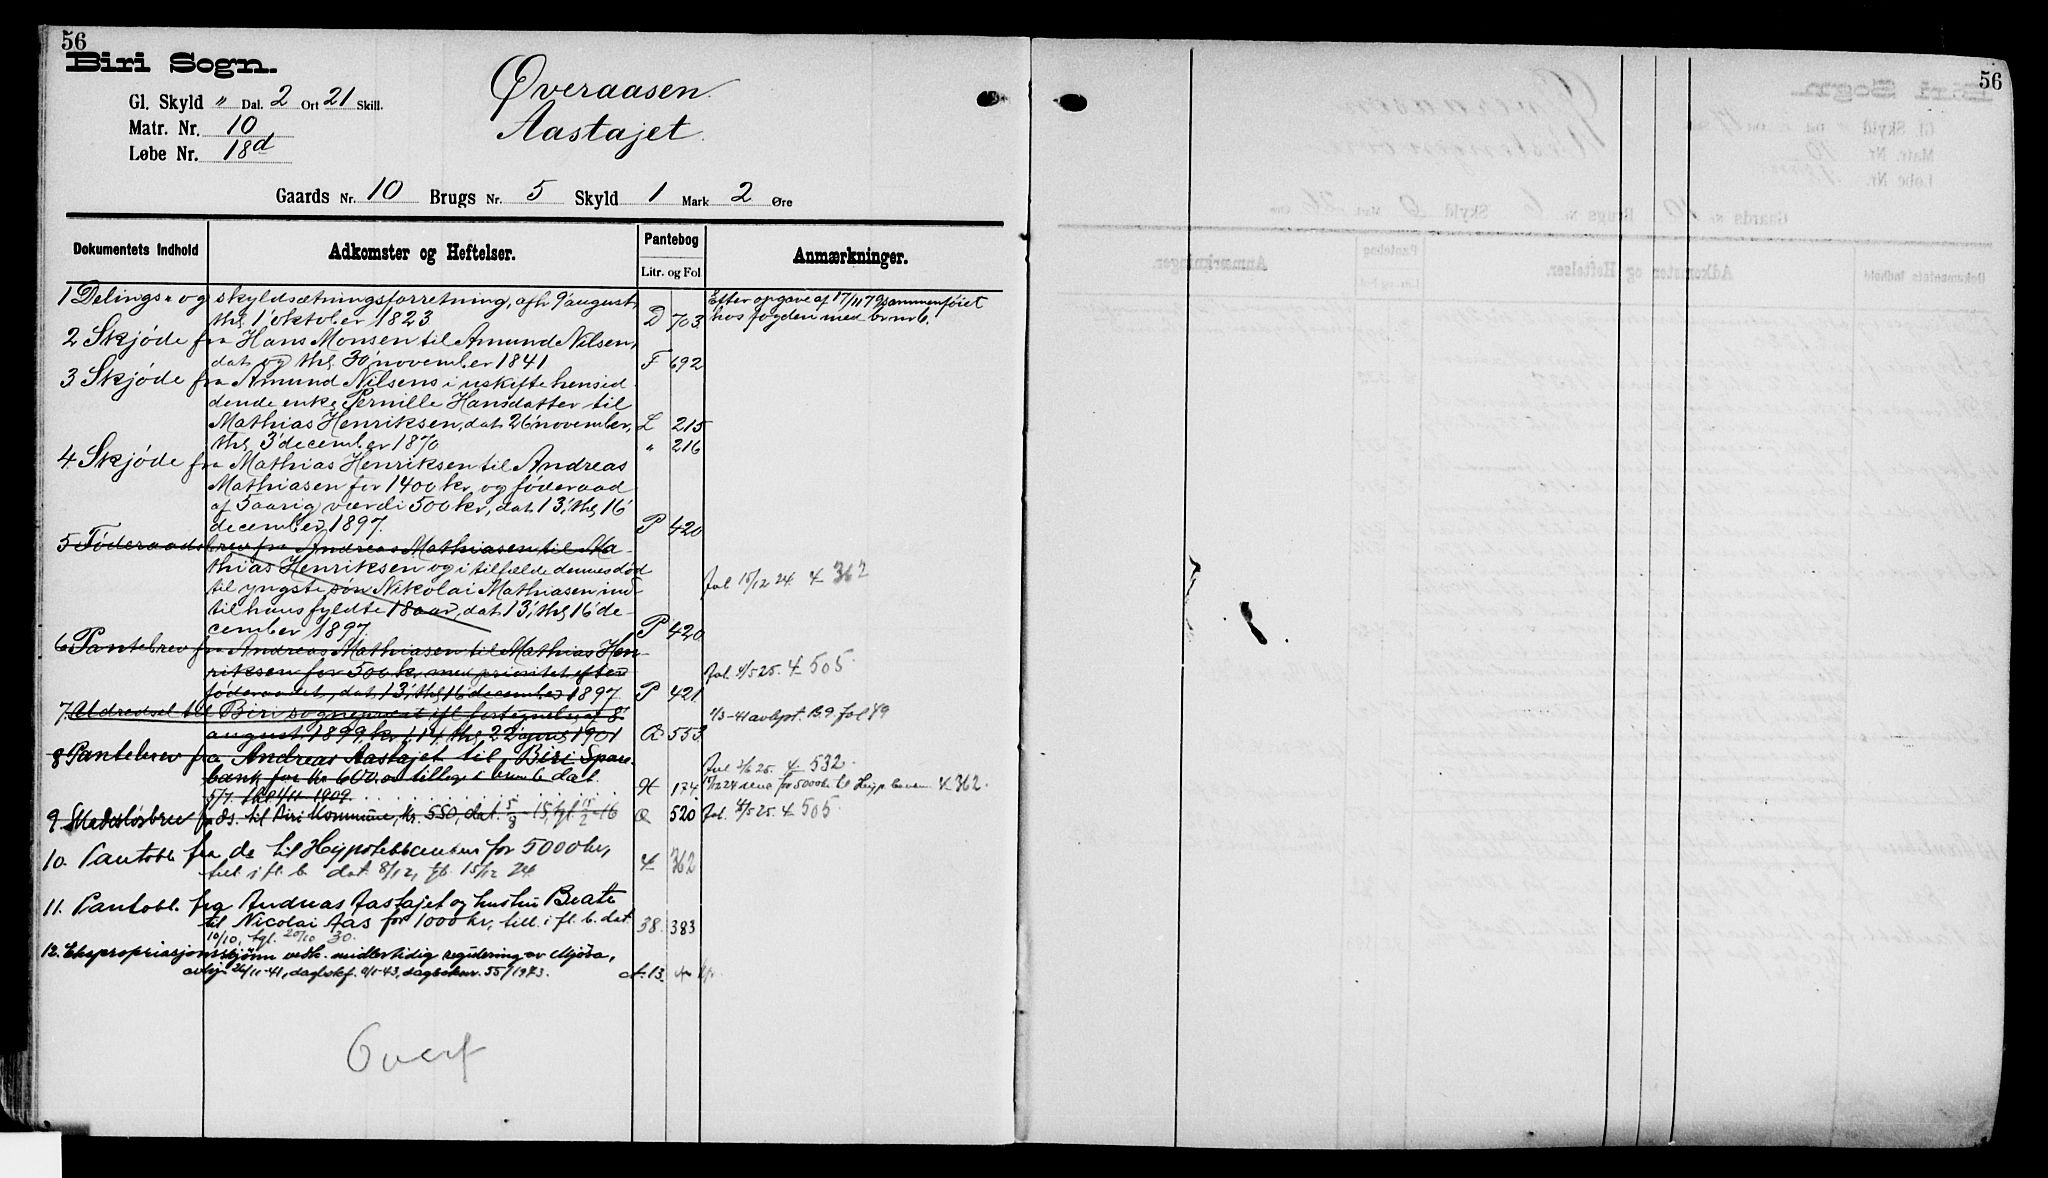 56
Biri Sogn.
Gl. Skyld " Dal. 2 Ort 21 Skill.
Matr. Nr. 10
Løbe Nr. 18d
Øveraasen
Aastajet
Gaards Nr. 10 Brugs Nr. 5 Skyld 1 Mark 2 Øre
Dokumentets Indhold Adkomster og Heftelser. Pantebog Litr. og Fol Anmærkninger.
1 Delings- og skyldsætningsforretning, afh. 9' august,
thl. 1' oktober 1823. D 703.
Efter opgave af 17/11 79 sammenføiet
hos fogden med br nr 6.
2 Skjøde fra Hans Monsen til Amund Nilsen,
dat. og thl. 30' november 1841 F 692
3 Skjøde fra Amund Nilsens i uskifte hensid-
dende enke Pernille Hansdatter til
Mathias Henriksen, dat. 26' november, L 215
thl. 3' december 1870 " 216
4 Skjøde fra Mathias Henriksen til Andreas
Mathiasen for 1400 kr. og føderaad
af 5 aarig værdi 500 kr., dat. 13', thl. 16'
december 1897. P 420
5 Føderaadsbrev fra Andreas Mathiasen til Ma-
thias Henriksen og i tilfælde dennes død
til yngste søn Nikolai Mathiasen ind-
til hans fyldte 18 aar, dat. 13', thl. 16' de-
cember 1897. P 420
15/12 24. 4 362
6 Pantebrev fra Andreas Mathiasen til Mathias Hen-
riksen for 500 kr. med prioritet efter
føderaadet, dat. 13', thl. 16' december 1897. P 421
4/5 25. 4 505.
7. til Biri ifl. fortegnelse af 8'
august 1899, kr. 1,14, thl. 22 1901 Q 553.
1/3-41 avlyst. B. 9 fol 49
8 Pantebrev fra Andreas Aastajet til Biri Spare-
bank for Kr 600. og tillige i br. nr 6 dat.
5/7. thl 1/11 1909. H 174
2/6 25. 4 532.
15/12 24 for 5000 kr til 4 362.
9 fra ds. til Biri Kommune, kr. 550, dat. 5/8-15, tgl. 15/2-16 Q 520
4/5 25. 4 505.
10. Pantobl. fra ds til Hypotekbanken for 5000 kr,
till i fl. b. dat. 8/12, tgl. 15/12 24 4 362
11. Pantobl. fra Andreas Aastajet og hustru Beate
til Nicolai Aas for 1000 kr, till. i fl. b. dat. 38. 383
10/10, tgl. 20/10 30.
12. Ekspropriasjonsskjønn vedk. midlertidig regulering av Mjøsa,
26/11-41, 55/1943. A. 13.
Overf
56